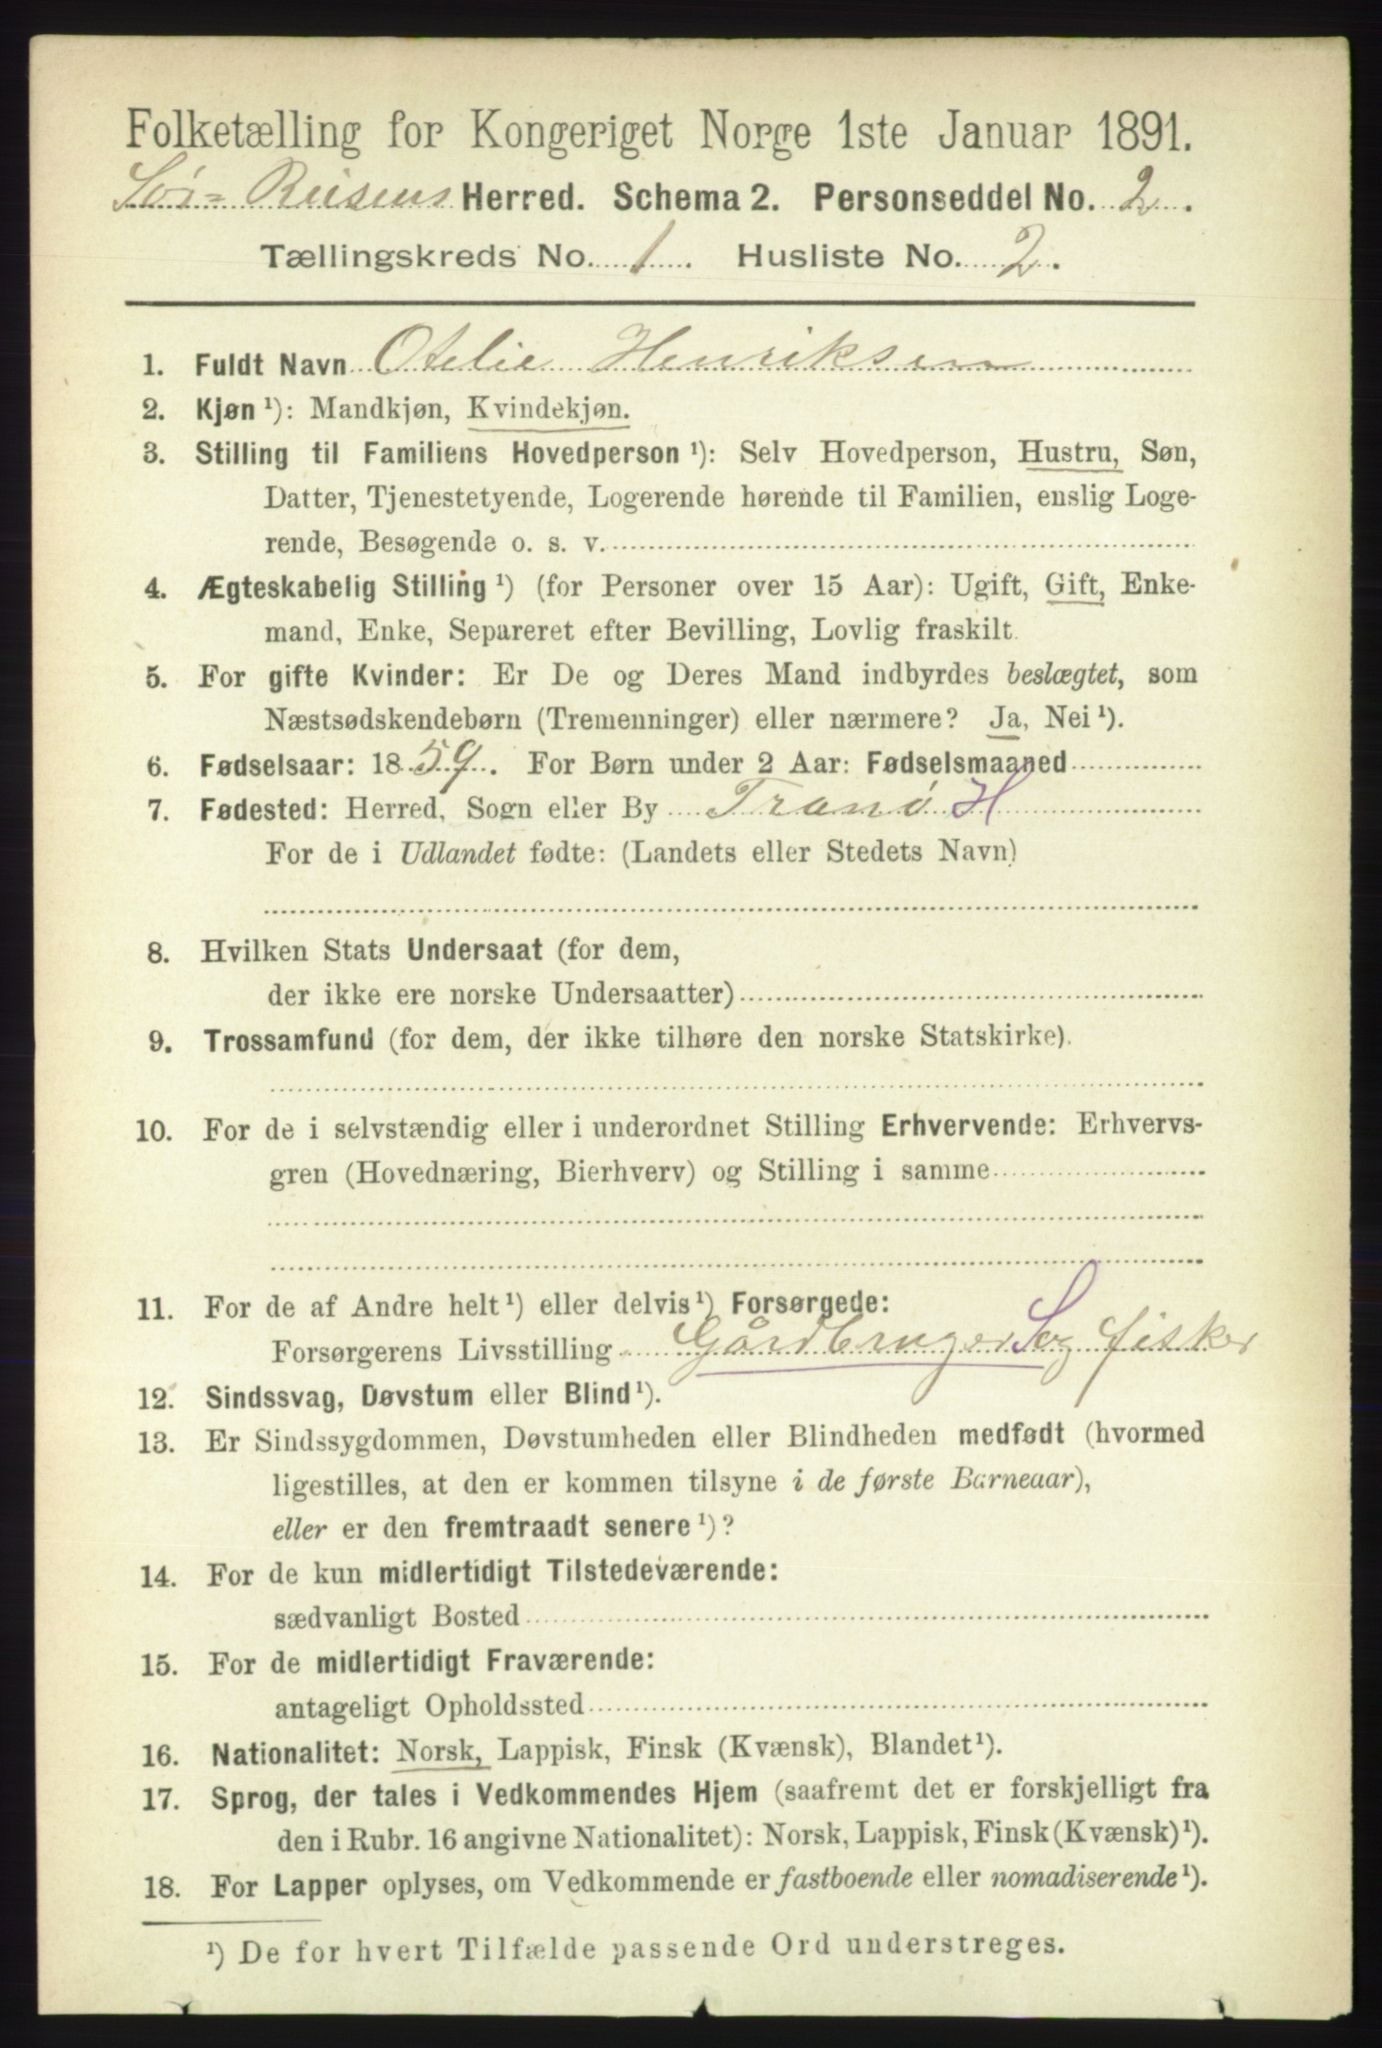 Folketælling for Kongeriget Norge 1ste Januar 1891.
Sør-Reisens Herred. Schema 2. Personseddel No. 2.
Tællingskreds No. 1. Husliste No. 2.
1. Fuldt Navn Otelie Henriksen
2. Kjøn ¹): Mandkjøn, Kvindekjøn.
3. Stilling til Familiens Hovedperson ¹): Selv Hovedperson, Hustru, Søn,
Datter, Tjenestetyende, Logerende hørende til Familien, enslig Loge-
rende, Besøgende o. s. v.
4. Ægteskabelig Stilling ¹) (for Personer over 15 Aar): Ugift, Gift, Enke-
mand, Enke, Separeret efter Bevilling, Lovlig fraskilt.
5. For gifte Kvinder: Er De og Deres Mand indbyrdes beslægtet, som
Næstsødskendebørn (Tremenninger) eller nærmere? Ja, Nei ¹).
6. Fødselsaar: 1859. For Børn under 2 Aar: Fødselsmaaned
7. Fødested: Herred, Sogn eller By Tranø H
For de i Udlandet fødte: (Landets eller Stedets Navn)
8. Hvilken Stats Undersaat (for dem,
der ikke ere norske Undersaatter)
9. Trossamfund (for dem, der ikke tilhøre den norske Statskirke).
10. For de i selvstændig eller i underordnet Stilling Erhvervende: Erhvervs-
gren (Hovednæring, Bierhverv) og Stilling i samme
11. For de af Andre helt ¹) eller delvis ¹) Forsørgede:
Forsørgerens Livsstilling Gårdbruger S og fisker
12. Sindssvag, Døvstum eller Blind ¹).
13. Er Sindssygdommen, Døvstumheden eller Blindheden medfødt (hvormed
ligestilles, at den er kommen tilsyne i de første Barneaar),
eller er den fremtraadt senere ¹)?
14. For de kun midlertidigt Tilstedeværende:
sædvanligt Bosted
15. For de midlertidigt Fraværende:
antageligt Opholdssted
16. Nationalitet: Norsk, Lappisk, Finsk (Kvænsk), Blandet ¹).
17. Sprog, der tales i Vedkommendes Hjem (saafremt det er forskjelligt fra
den i Rubr. 16 angivne Nationalitet): Norsk, Lappisk, Finsk (Kvænsk) ¹).
18. For Lapper oplyses, om Vedkommende er fastboende eller nomadiserende ¹).
¹) De for hvert Tilfælde passende Ord understreges.